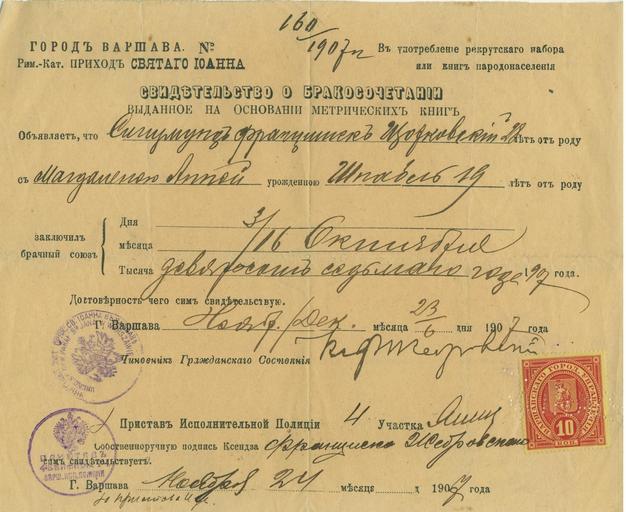 160
ГОРОДЪ ВАРШАВА. № 1907 г
Рим.-Кат. ПРИХОДЪ СВЯТАГО ІОАННА
Въ употребленіе рекрутскаго набора
или книгъ народонаселенія
СВИДѢТЕЛЬСТВО О БРАКОСОЧЕТАНІИ
ВЫДАННОЕ НА ОСНОВАНІИ МЕТРИЧЕСКИХЪ КНИГЪ
Объявляетъ, что Сигизмундъ Францишекъ 22 лѣтъ отъ роду
съ Магдаленою Анной урожденною Шнабель 19 лѣтъ отъ роду
заключилъ
брачный союзъ
Дня 3/16
мѣсяца Октября
Тысяча девятьсотъ седьмаго года 1907 года.
Достовѣрность чего симъ свидѣтельствую.
Г. Варшава Нояб./Дек. мѣсяца 23/6 дня 1907 года
Чиновникъ Гражданскаго Состоянія
Приставъ Исполнительной Полиціи 4 Участка
Собственноручную подпись Ксендза Франциска
симъ свидѣтельствуетъ.
Г. Варшава Ноября 24 мѣсяца д 1907 года
10
КОП.